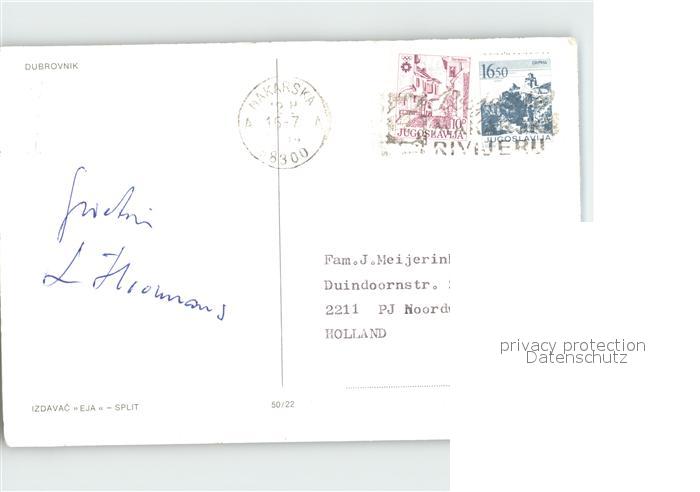 DUBROVNIK
MAKARSKA
16-7
58300
10
JUGOSLAVIJA
16.50
JUGOSLAVIJA
RIVIJERU
Fam.J.Meijerin
Duindoornstr.
2211 PJ Noordw
HOLLAND
privacy protection
Datenschutz
IZDAVAČ »EJA« – SPLIT
50/22